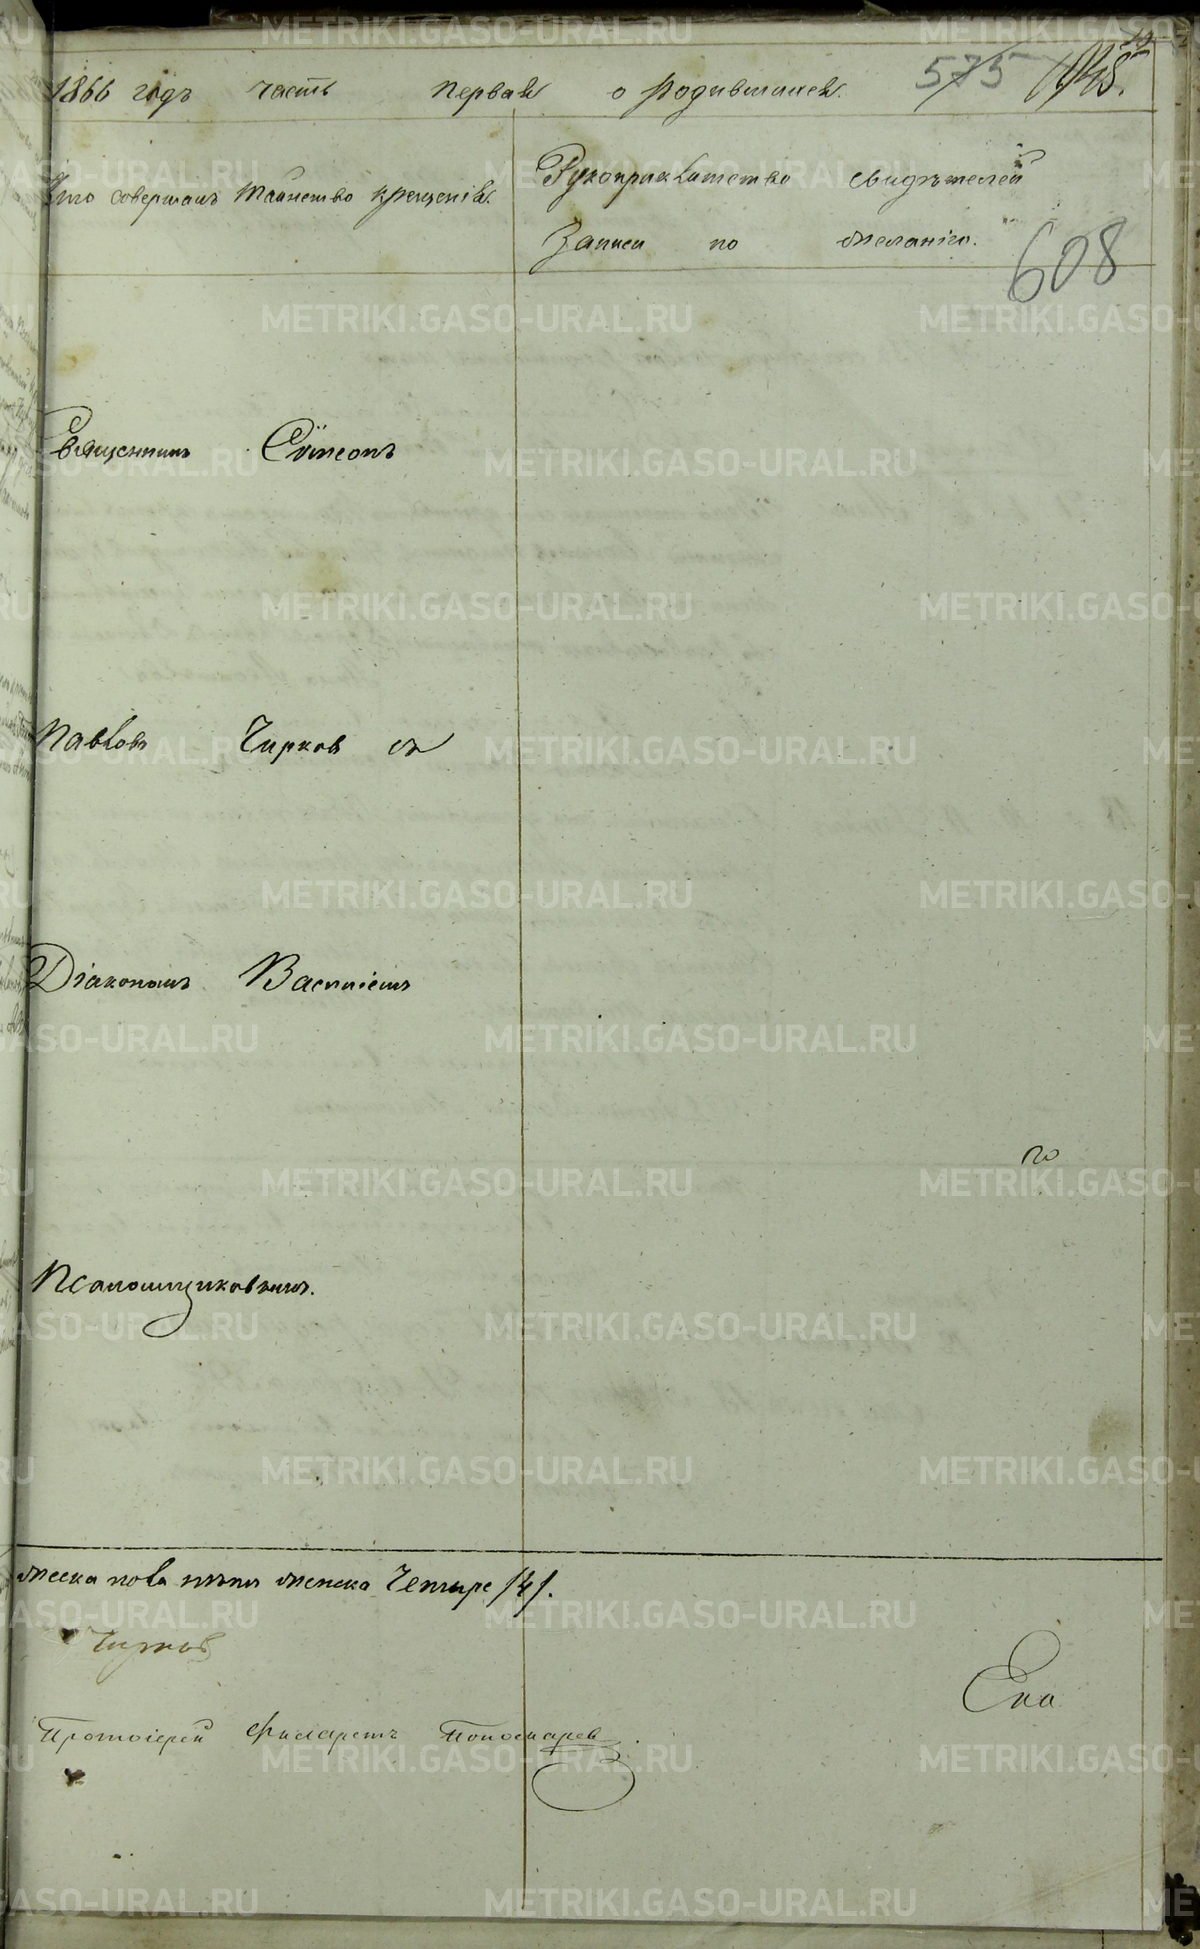 1866 годъ часть первая о родившихся. 575
Кто совершалъ таинство крещенія.
Рукоприкладство свидѣтелей
записи по желанію.
608
Священникъ Сѵмеонъ
Павловъ Чирковъ съ
Діакономъ Василіемъ
по
Псаломщиковымъ.
женска четыре /4/.
Чирковъ
Протоіерей Филаретъ Пономаревъ.
METRIKI.GASO-URAL.RU